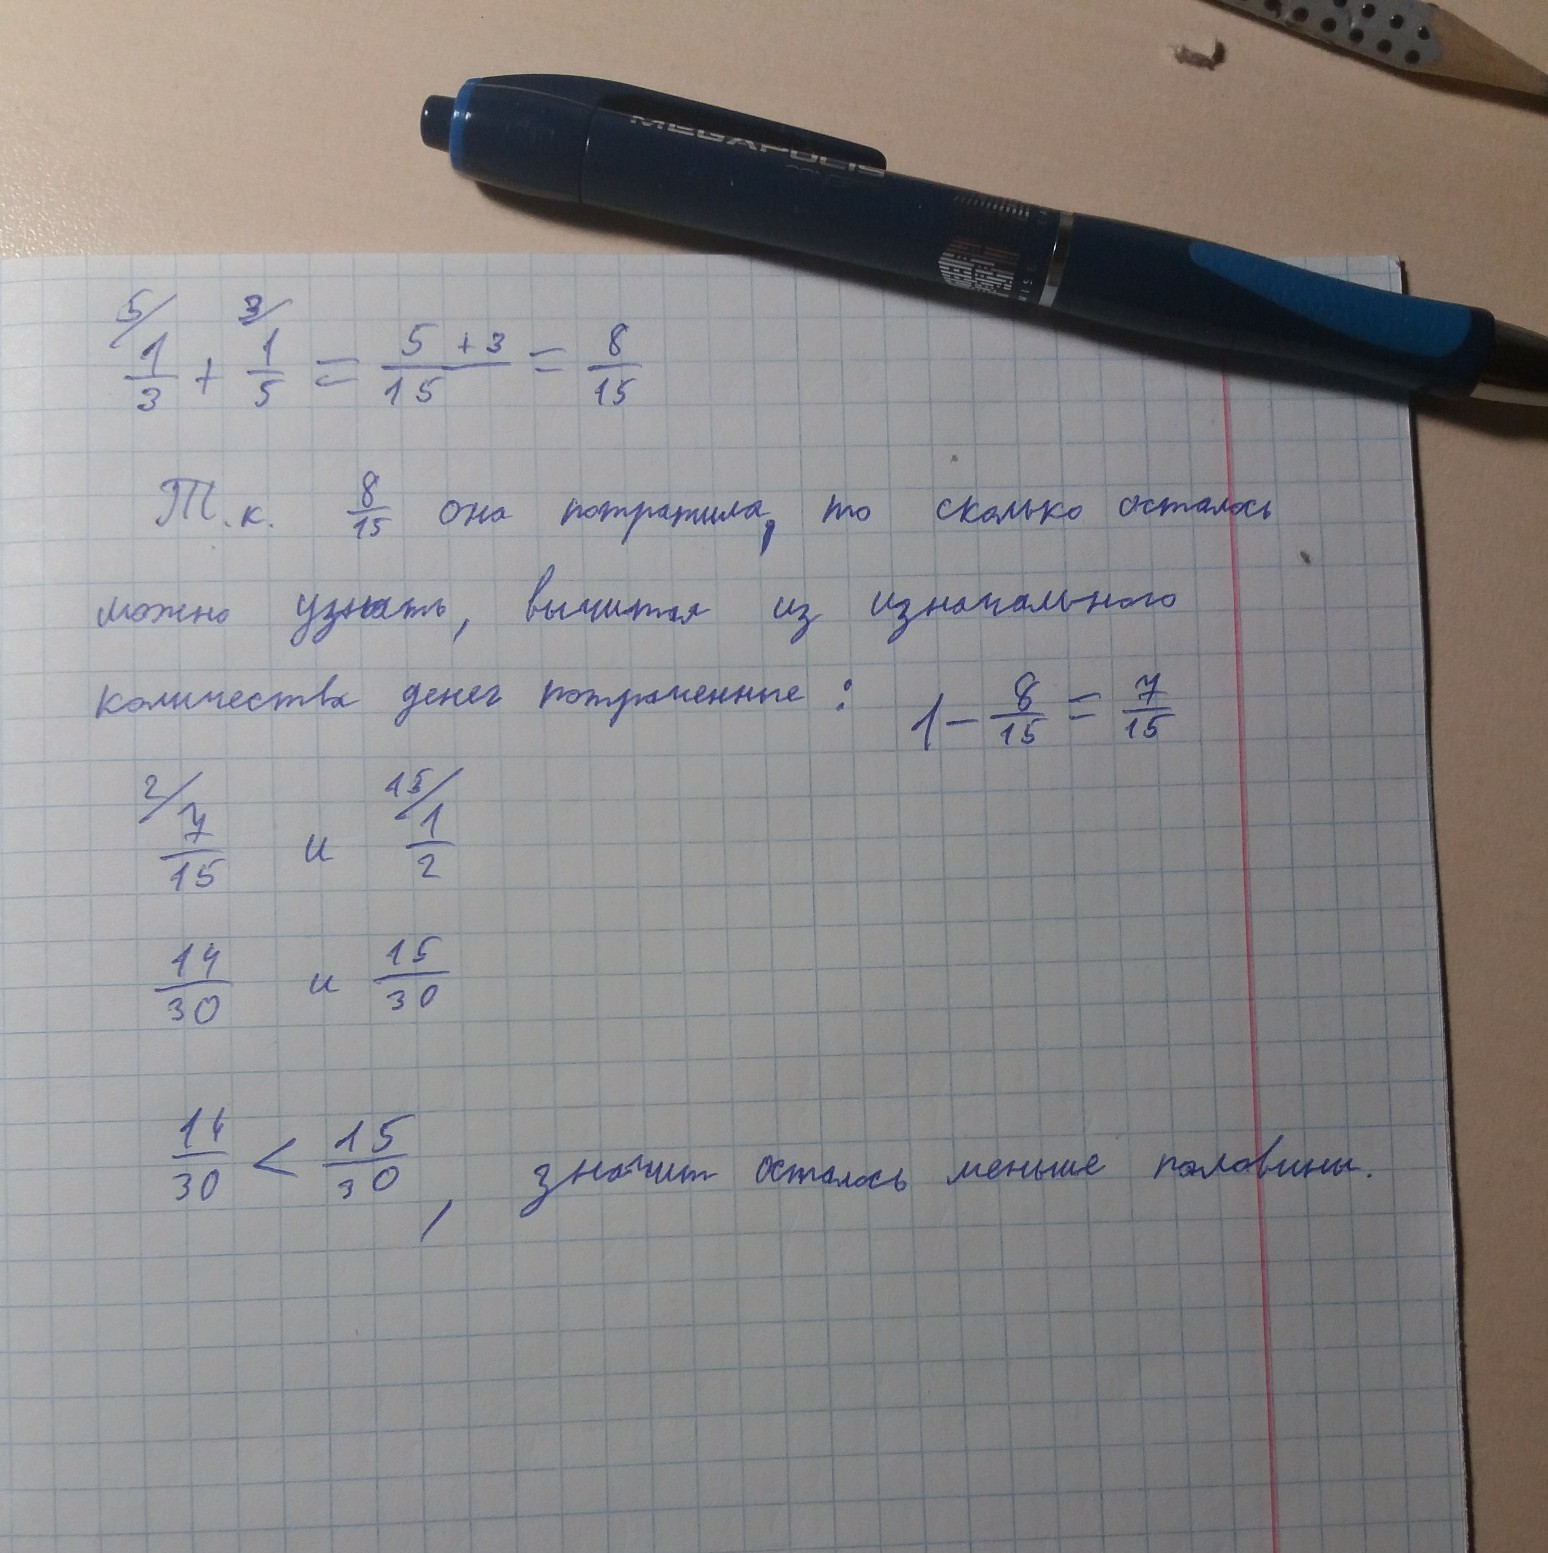 MEGAPOLIS
5/ 3/
1/3 + 1/5 = 5+3/15 = 8/15
Т.к. 8/15 она потратила, то сколько осталось
можно узнать, вычитая из изначального
количества денег потраченные: 1 - 8/15 = 7/15
2/ 15/
7/15 и 1/2
14/30 и 15/30
14/30 < 15/30, значит осталось меньше половины.